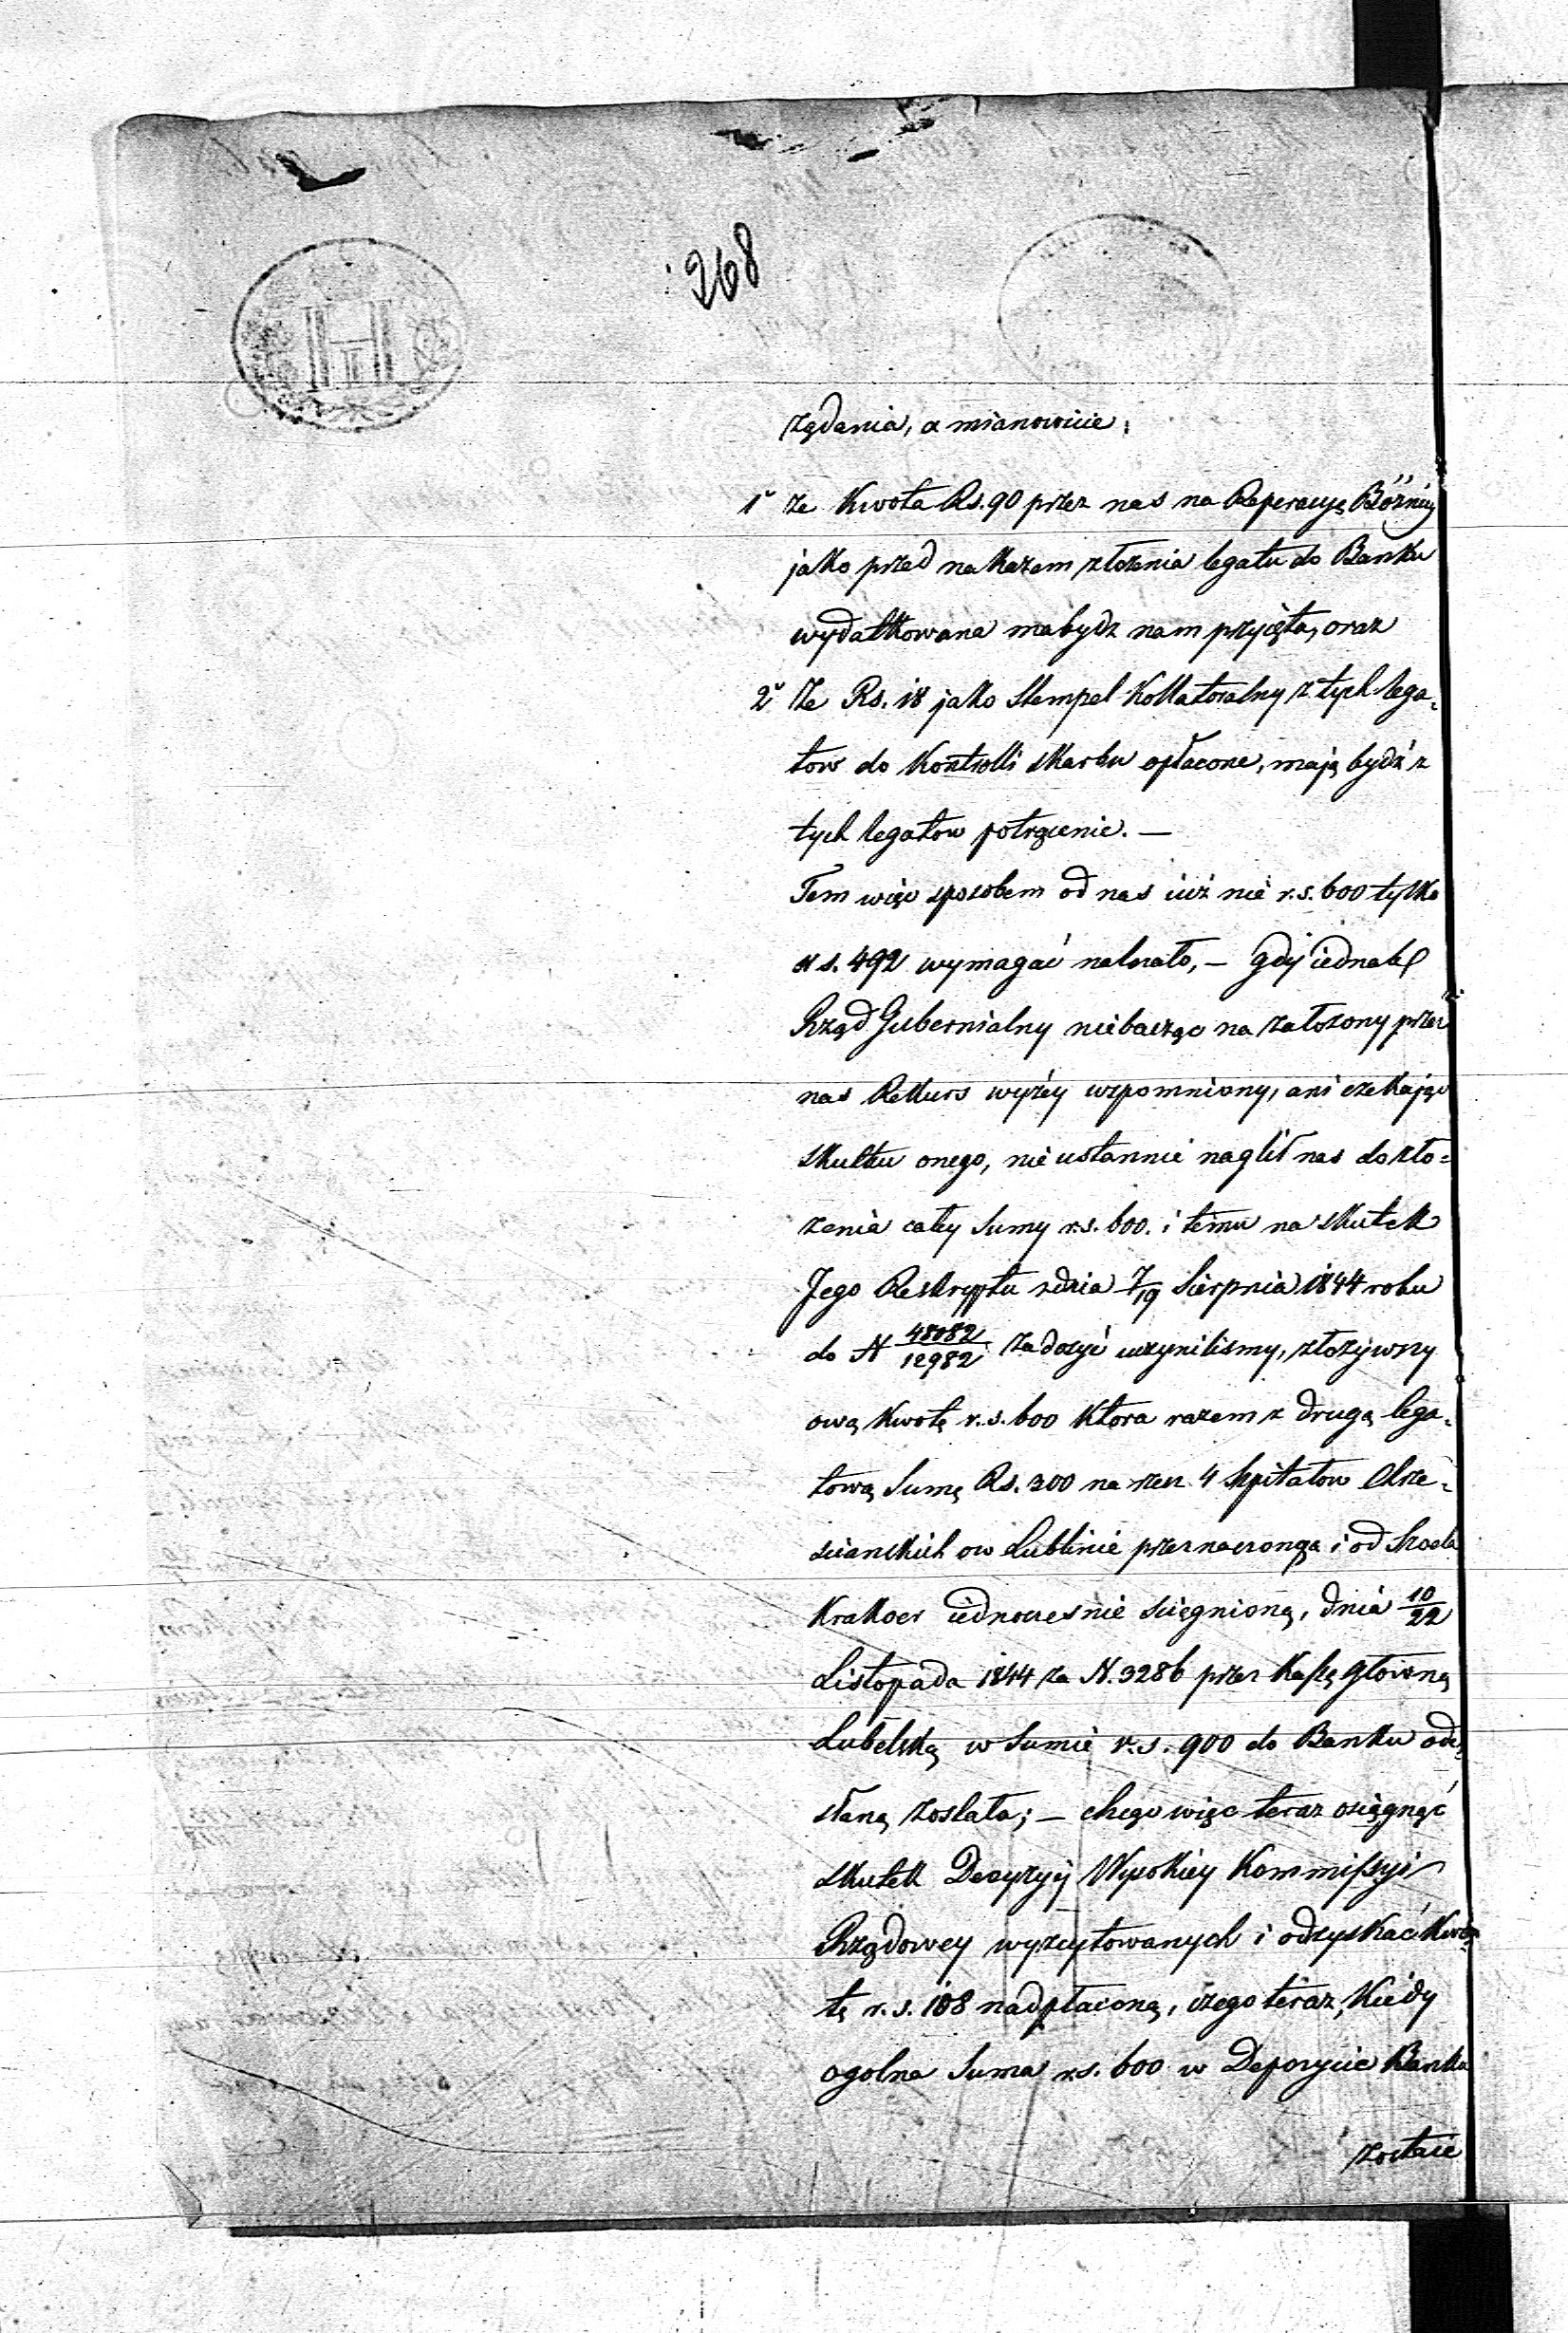 268
żądania, a mianowicie:
1° że Kwota Rs. 90 przez nas na Reperacyę Bóżnicy
jako przed nakazem złożenia legatu do Banku
wydatkowana ma bydz nam przyięta, oraz
2° Że Rs. 18 jako Stempel Kollateralny z tych lega=
tow do Kontrolli skarbu opłacone, mają bydź z
tych legatow potrącenie. —
Tem więc sposobem od nas iuż nie r.s. 600 tylko
r s. 492 wymagać należało, — gdy iednak
Rząd Gubernialny niebacząc na założony przez
nas Rekurs wyżey wspomniony, ani czekając
skutku onego, nieustannie naglił nas do zło=
żenia całey Sumy r.s. 600. i temu na skutek
Jego Reskryptu z dnia 7/19 Sierpnia 1844 roku
do N 48082/12982 zadosyć uczyniliśmy, złożywszy
ową Kwotę r.s. 600 Ktora razem z drugą lega=
tową Sumą Rs. 300 na rzecz 4 szpitalow Chrze=
scianskich w Lublinie przeznaczoną i od
Krakoer iednoczesnie sciągnioną, dnia 10/22
Listopada 1844 za N. 3286 przez Kassę Głowną
Lubelską w Sumie r.s. 900 do Banku ode=
słaną została; — chcąc więc teraz osiągnąć
skutek Decyzyi Wysokiey Kommissyi
Rządowey wyżcytowanych i odzyskać Kwo=
tę r.s. 108 nadpłaconą, czego teraz, Kiedy
ogolna Suma r.s. 600 w Depozycie Banku
zostaie